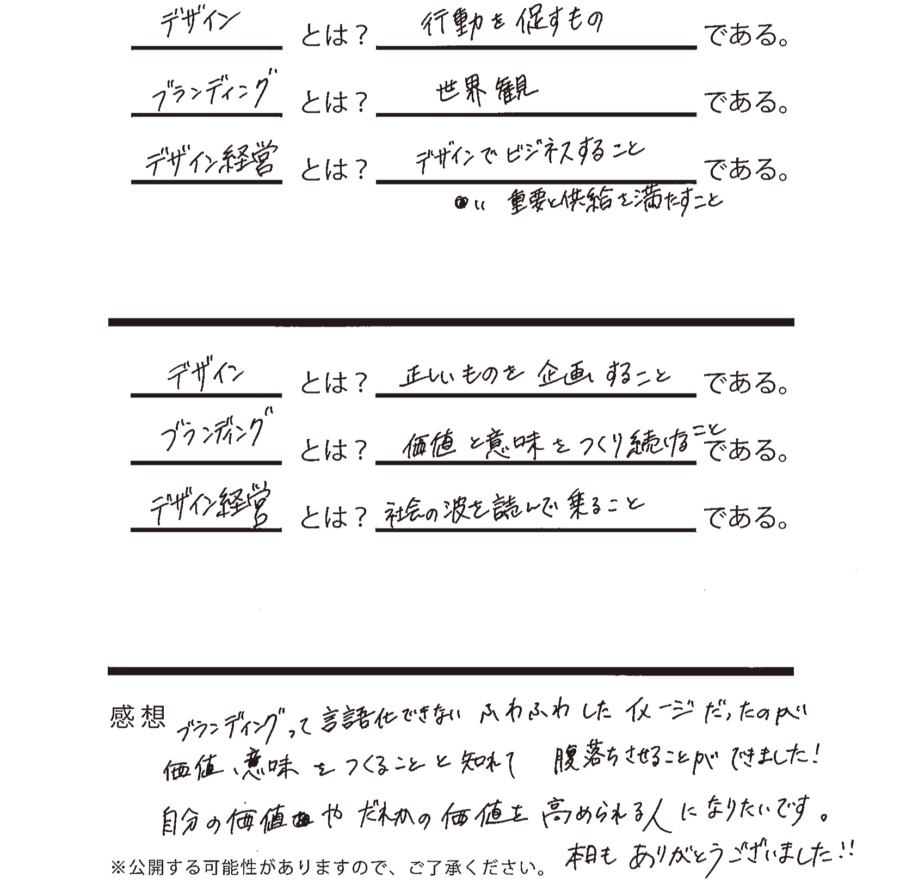 デザイン とは？ 行動を促すもの である。
ブランディング とは？ 世界観 である。
デザイン経営 とは？ デザインでビジネスすること である。
〃 重要と供給を満たすこと
デザイン とは？ 正しいものを企画すること である。
ブランディング とは？ 価値と意味をつくり続けること である。
デザイン経営 とは？ 社会の波を読んで乗ること である。
感想 ブランディングって言語化できないふわふわしたイメージだったのが
価値、意味をつくることと知れて 腹落ちさせることができました！
自分の価値やだれかの価値を高められる人になりたいです。
本日もありがとうございました!!
※公開する可能性がありますので、ご了承ください。